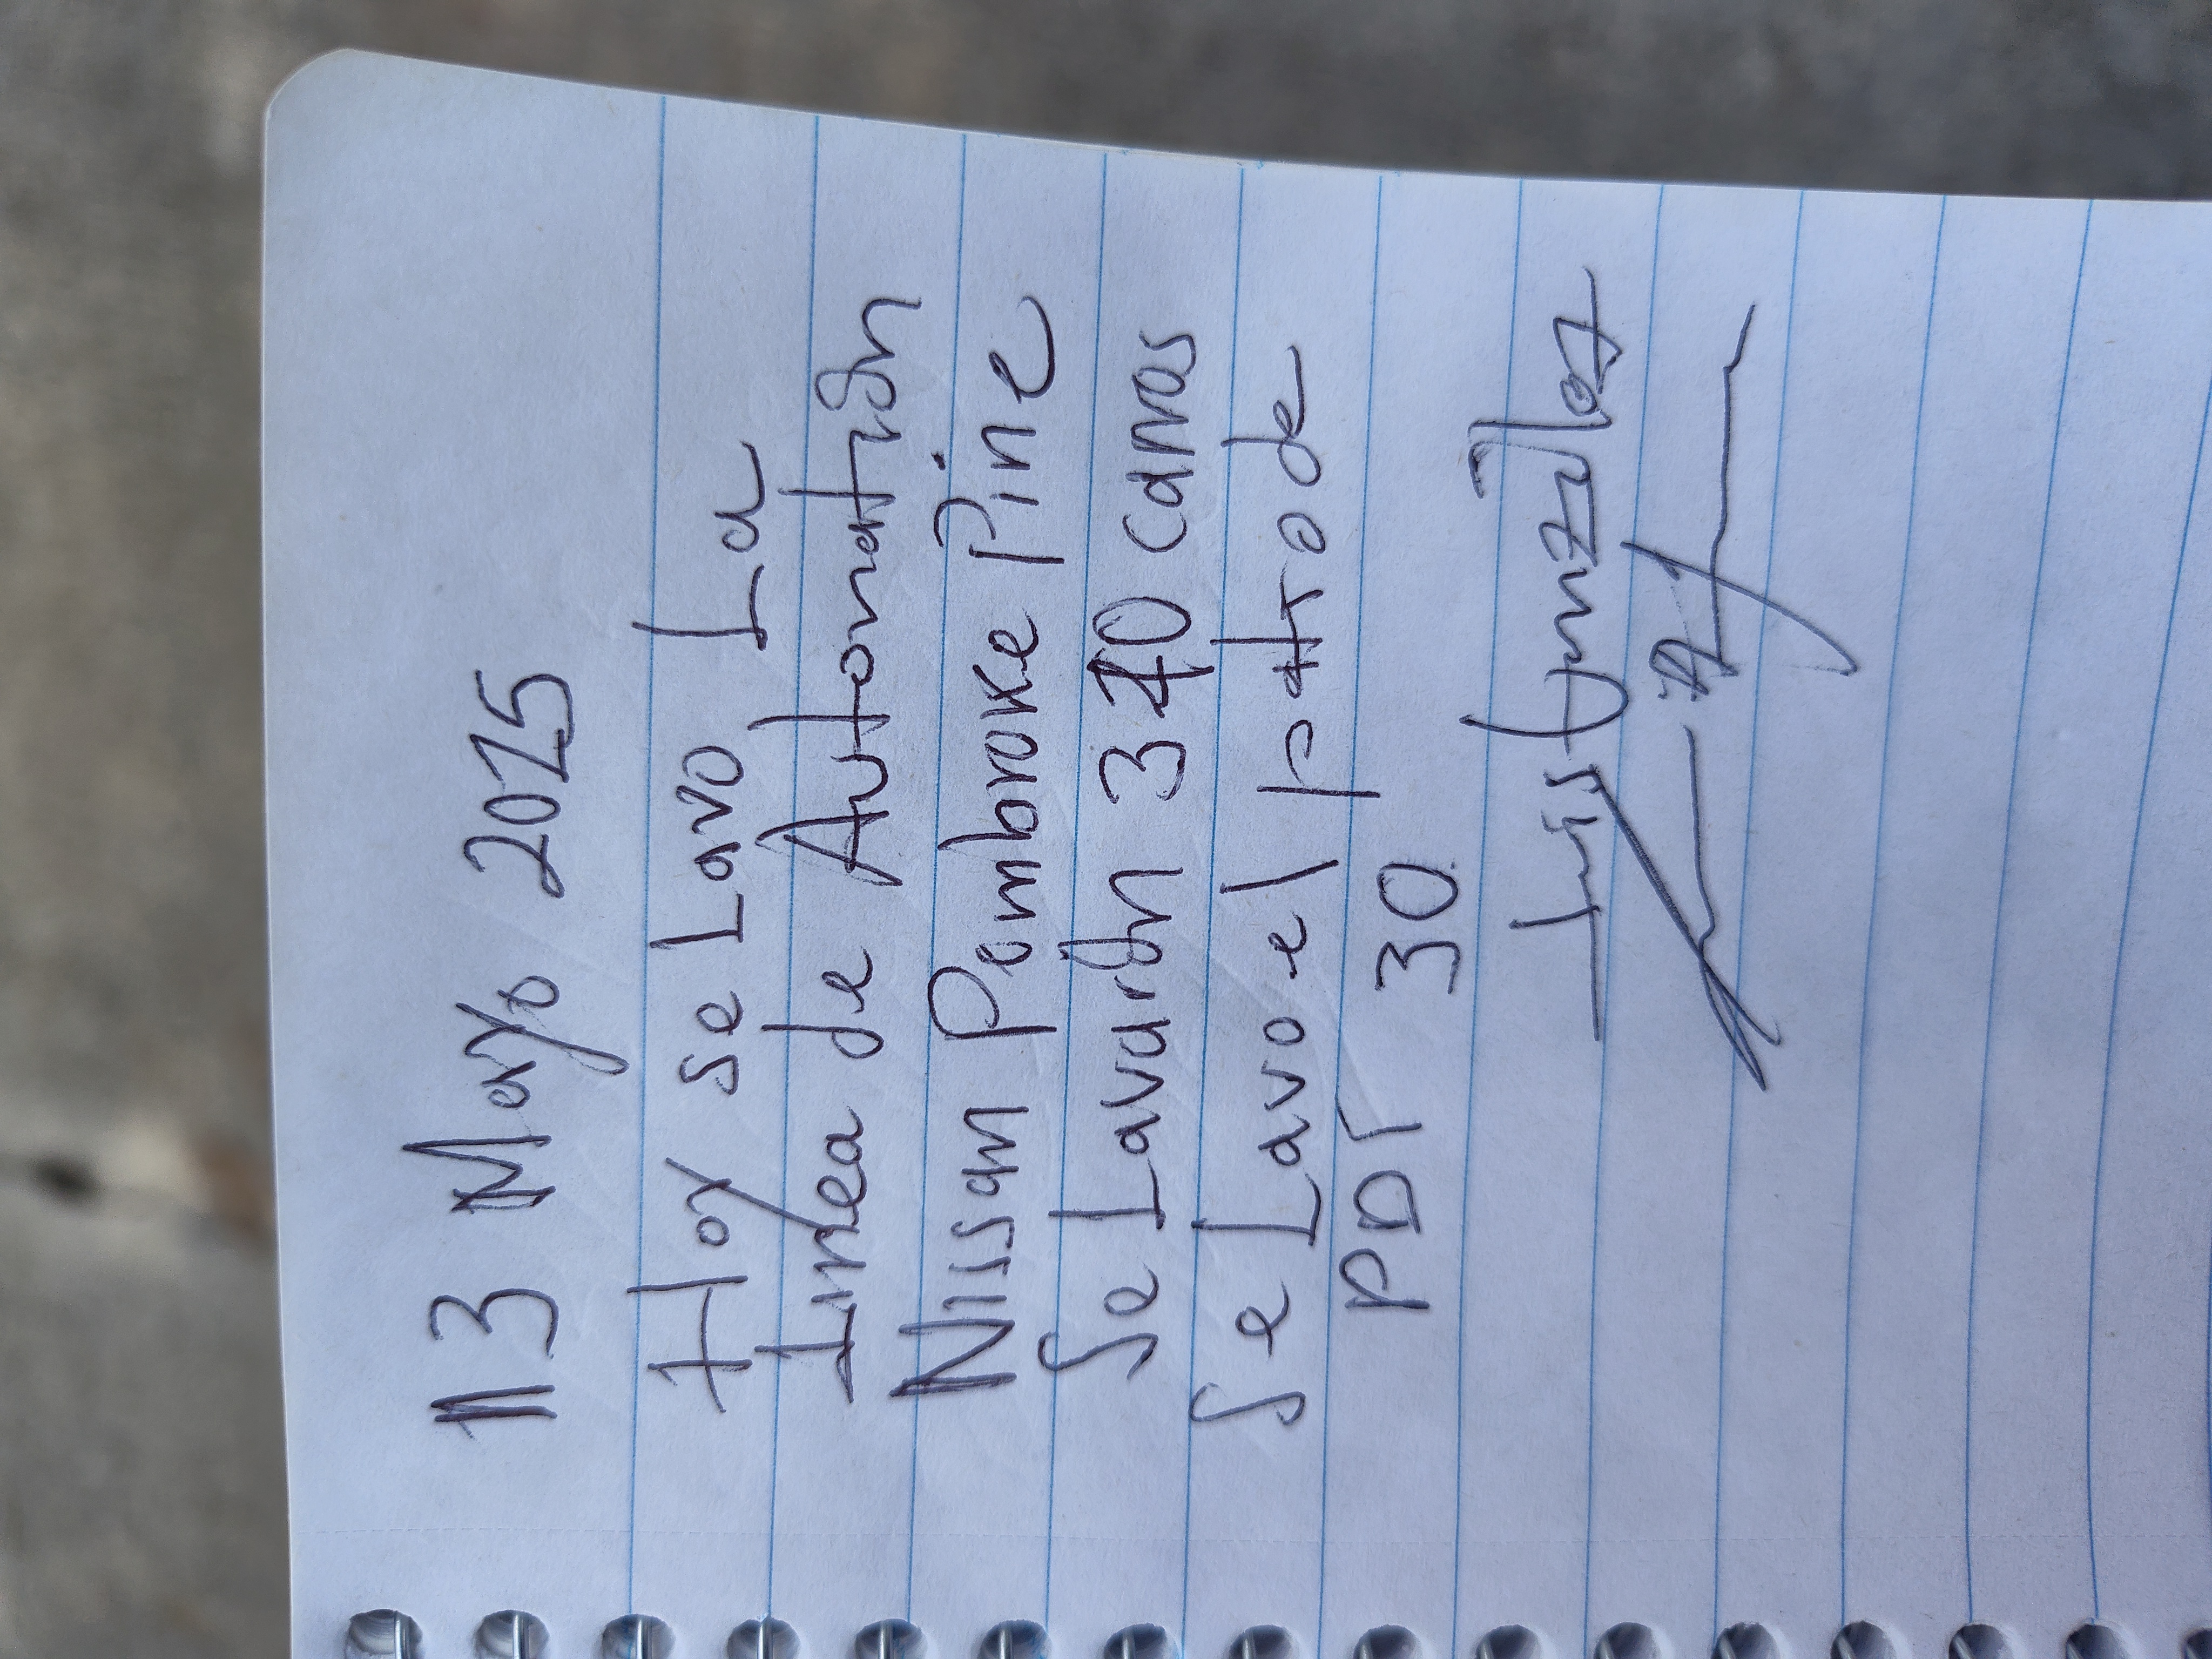 13 Mayo 2025
Hoy se Lavo La
Linea de Automation
Nissan Pembroke Pine
Se Lavarón 370 carros
Se Lavo el patrode
PDI 30
Luis